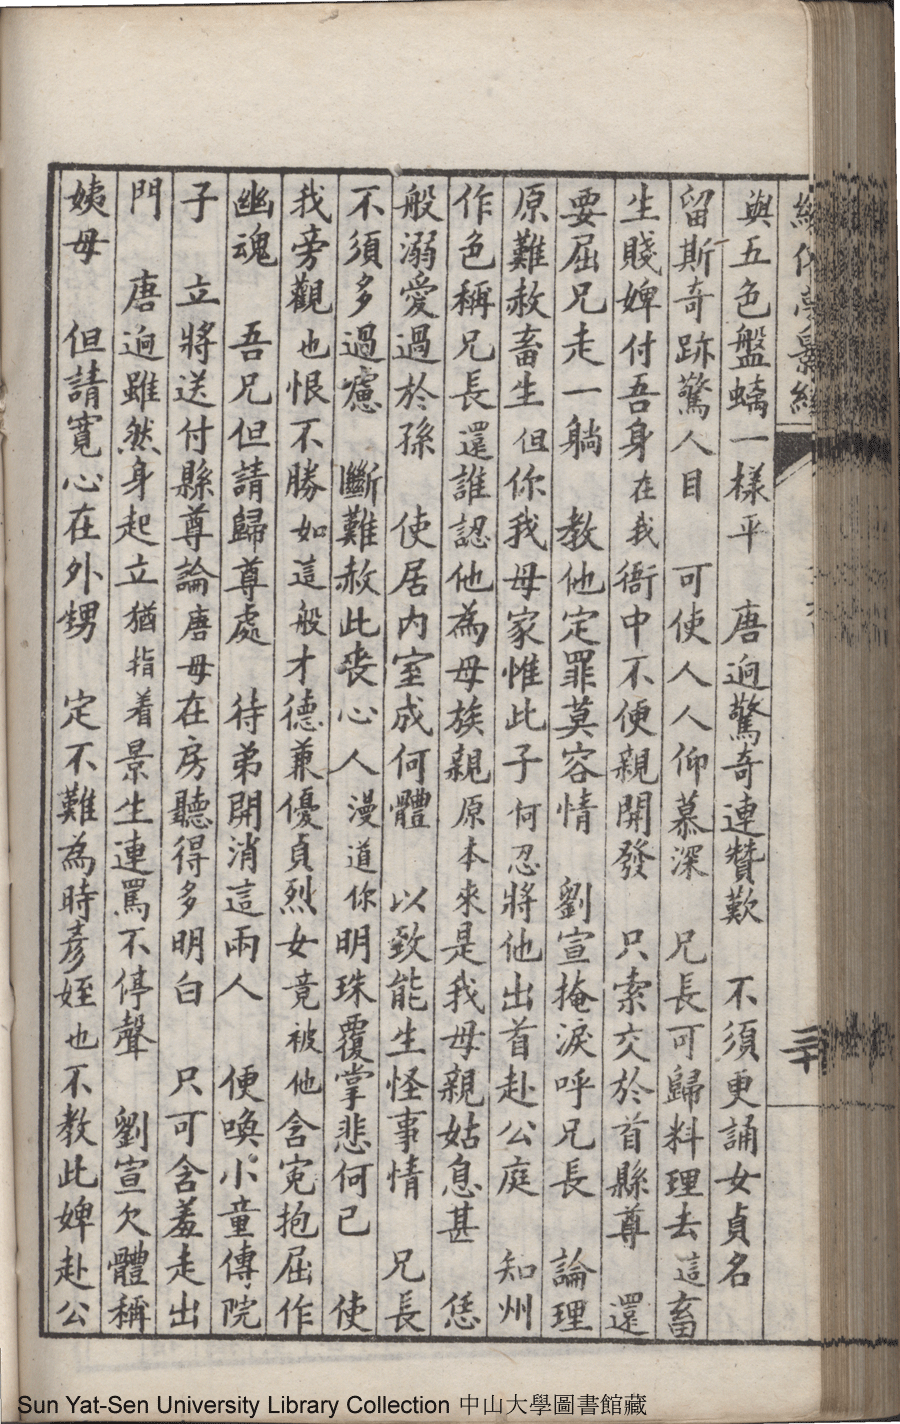 與五色盤螭一樣平　唐迥驚奇連贊歎　不須更誦女貞名
留斯奇跡驚人目　可使人人仰慕深　兄長可歸料理去這畜
生賤婢付吾身在我衙中不便親開發　只索交於首縣尊　還
要屈兄走一躺　教他定罪莫容情　劉宣掩淚呼兄長　論理
原難赦畜生但你我母家惟此子何忍將他出首赴公庭　知州
作色稱兄長還誰認他為母族親原本來是我母親姑息甚　恁
般溺愛過於孫　使居內室成何體　以致能生怪事情　兄長
不須多過慮　斷難赦此喪心人漫道你明珠覆掌悲何已　使
我旁觀也恨不勝如這般才德兼優貞烈女竟被他含冤抱屈作
幽魂　吾兄但請歸尊處　待弟開消這兩人　便喚小童傳院
子　立將送付縣尊論唐母在房聽得多明白　只可含羞走出
門　唐迥雖然身起立猶指着景生連罵不停聲　劉宣欠體稱
姨母　但請寬心在外甥　定不難為時彥姪也不教此婢赴公
三十
Sun Yat-Sen University Library Collection 中山大學圖書館藏